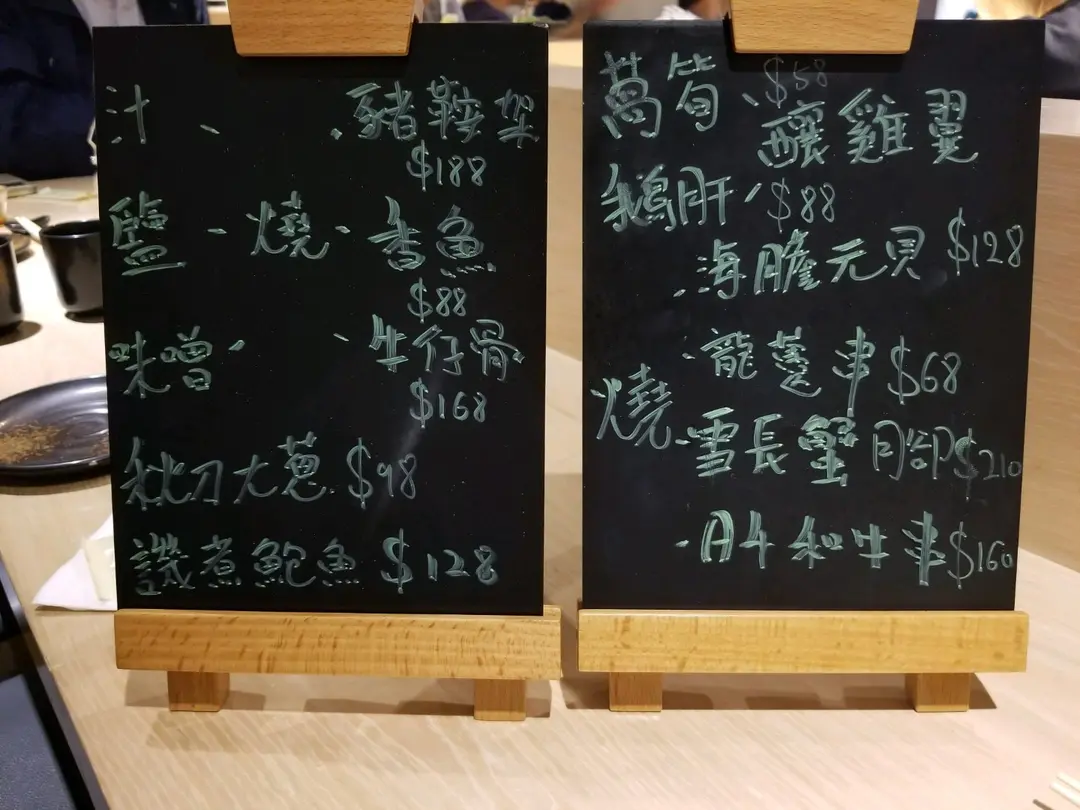 汁、 、豬鞍架
$188
鹽-燒、香魚
$88
味噌、 、牛仔骨
$168
秋刀大蔥 $98
煮鮑魚 $128
萵筍、$58
釀雞翼
鵝肝、$88
.海膽元貝 $128
·龍躉串 $68
燒
·雪長蟹腳 $210
·A4和牛串 $160